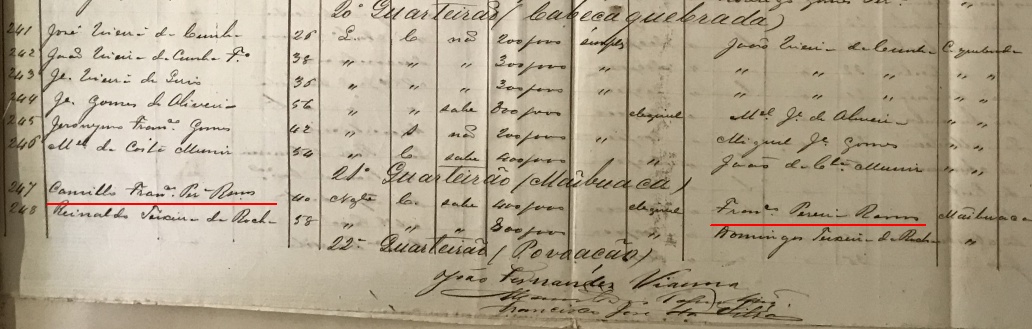 20º Quarteirão (Cabeça quebrada)
241 José Vieira da Cunha 26 L. C não 200$000 simples João Vieira da Cunha C. quebrada
242 João Vieira da Cunha Fº 38 " " " 300$000 " " " " " "
243 Je. Vieira de 36 " " " 300$000 " " " " " "
244 Je. Gomes de Oliveira 56 " " sabe 800$000 elegivel Mel Je. de Almeida " "
245 Jeronymo Franco. Gomes 42 " não 200$000 " Miguel Je. Gomes " "
246 Mel. da Costa Muniz 54 " C. sabe 400$000 " João da Cta. Muniz " "
21º Quarteirão (Maibuaca)
247 Camillo Franco. Pera. Ramos 40 Ngte C. sabe 400$000 elegivel Franco. Pereira Ramos Maibuaca
248 Reinaldo Teixeira da Rocha 58 " " " 800$000 " Domingos Teixeira da Rocha "
22º Quarteirão (Povoação)
João Fernandes Vianna
Manoel
Francisco José da Silva